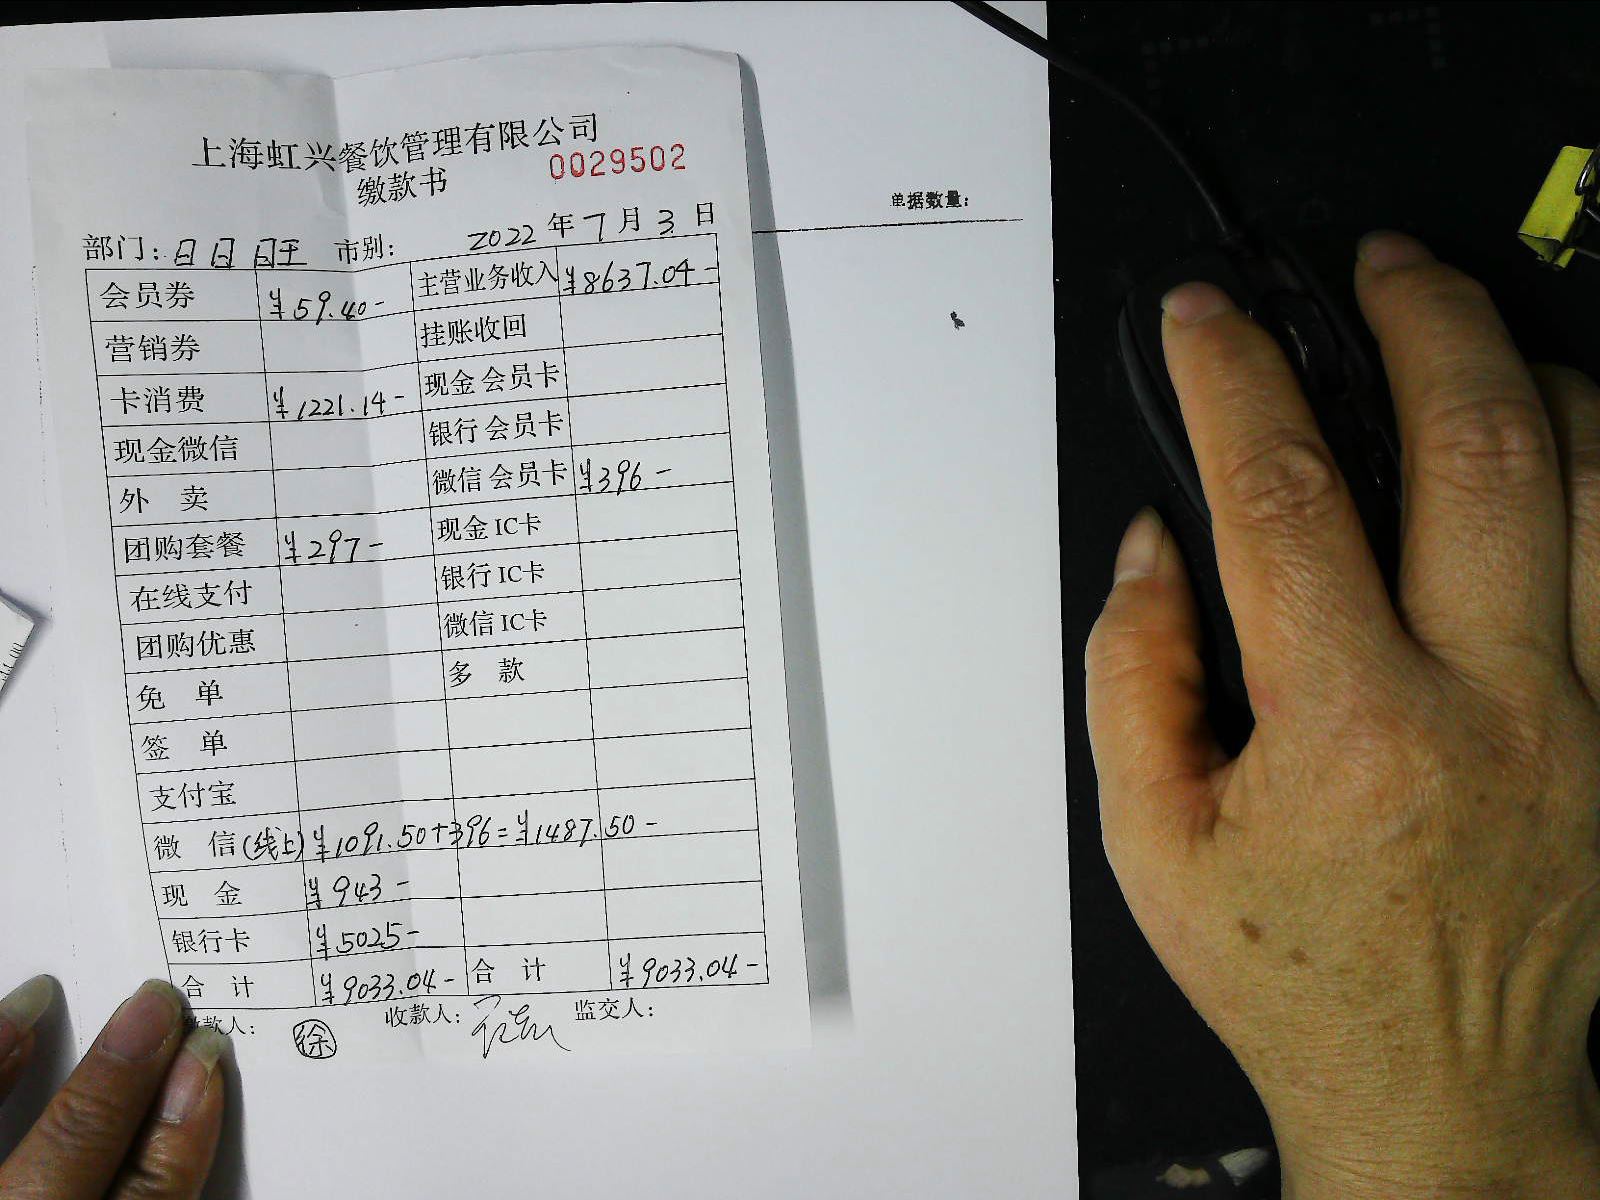 上海虹兴餐饮管理有限公司
缴款书 0029502
单据数量:
部门: 日日旺 市别: 2022年7月3日
会员券 ¥59.40- 主营业务收入 ¥8637.04-
营销券 挂账收回
卡消费 ¥1221.14- 现金会员卡
现金微信 银行会员卡
外 卖 微信会员卡 ¥396-
团购套餐 ¥297- 现金IC卡
在线支付 银行IC卡
团购优惠 微信IC卡
免 单 多 款
签 单
支付宝
微 信(线上) ¥1091.50+396=¥1487.50-
现 金 ¥943-
银行卡 ¥5025-
合 计 ¥9033.04- 合 计 ¥9033.04-
款人: 徐 收款人: 监交人: